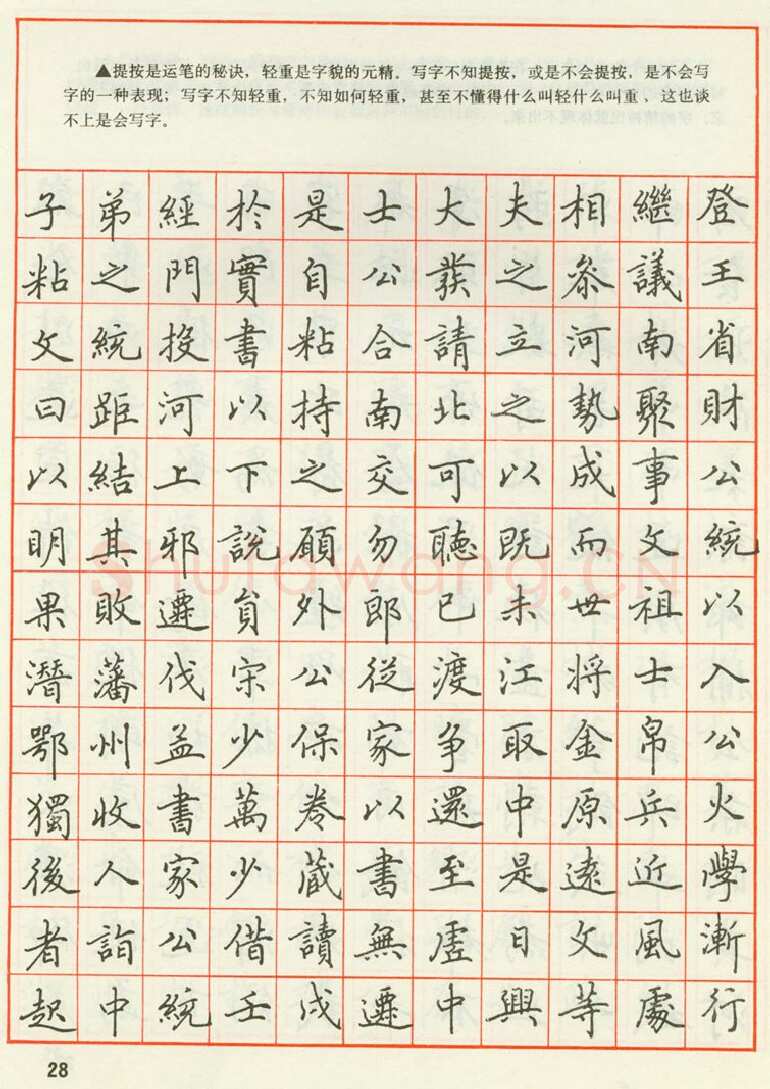 ▲提按是运笔的秘诀，轻重是字貌的元精。写字不知提按，或是不会提按，是不会写
字的一种表现；写字不知轻重，不知如何轻重，甚至不懂得什么叫轻什么叫重、这也谈
不上是会写字。
子弟經於是士大夫相繼登
粘之門實自公發之參議王
文統投書粘合請立河南省
曰距河以持南北之勢聚財
以結上下之交可以成事公
明其邪說願勿聽既而文統
果敗遷貟外郎已未世祖以
潛藩伐宋公從渡江將士入
鄂州益少保家爭取金帛公
獨收書萬卷以還中原兵火
後人家少蔵書至是遠近學
者詣公借讀無虛日文風漸
起中統壬戌遷中興等處行
28
Shufawang.CN